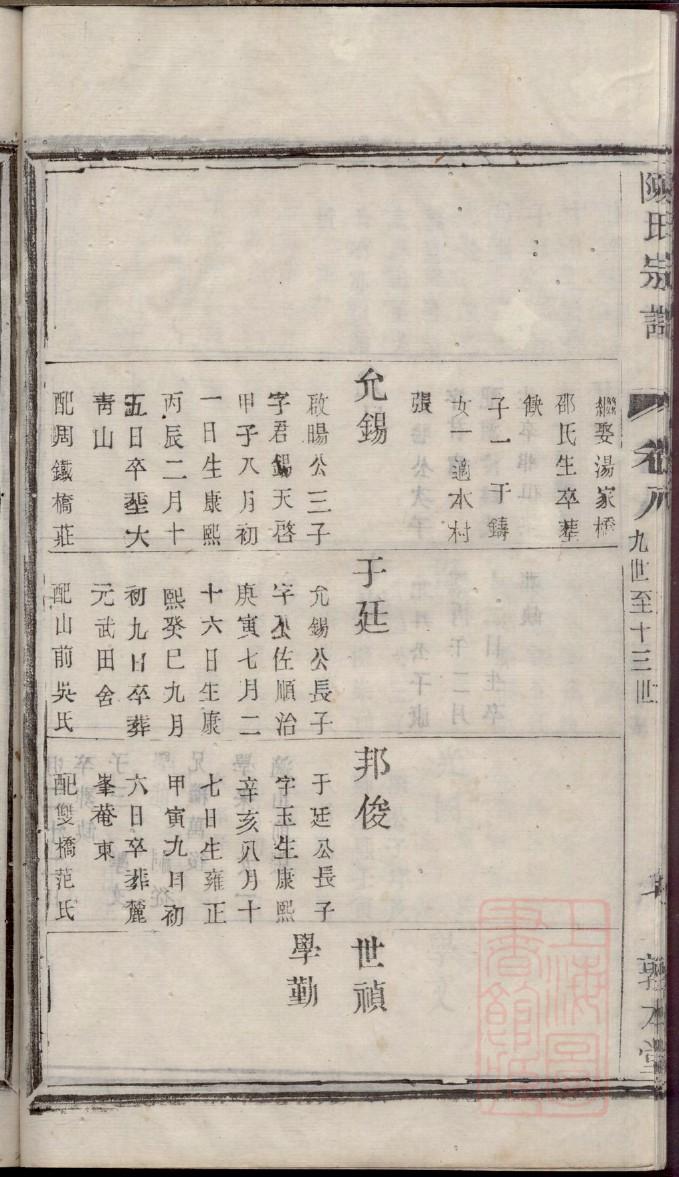 陳氏宗譜
卷八
九世至十三世
敦本堂
繼娶湯家橋
邵氏生卒葬
缺
子一 于鑄
女一適本村
張
允錫
啟暘公三子
字君錫天啓
甲子八月初
一日生康熙
丙辰二月十
五日卒塟大
靑山
配周鐵橋莊
于廷
允錫公長子
字公佐順治
庚寅七月二
十六日生康
熙癸巳九月
初九日卒葬
元武田舍
配山前吳氏
邦俊
于廷公長子
字玉生康熙
辛亥八月十
七日生雍正
甲寅九月初
六日卒葬麓
峯菴東
配雙橋范氏
世禎
學勤
上海圖書館藏